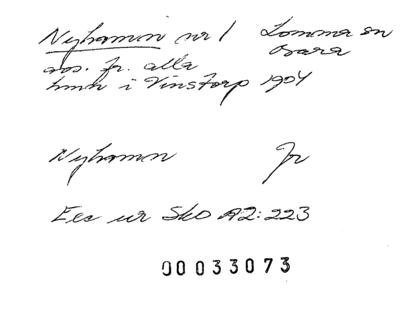 Nyhamn nr 1 Lomma sn
Bara
avs. fr. alla
hmn i Vinstorp 1904
Nyhamn Jr
Ees ur SkO A2:223
00033073